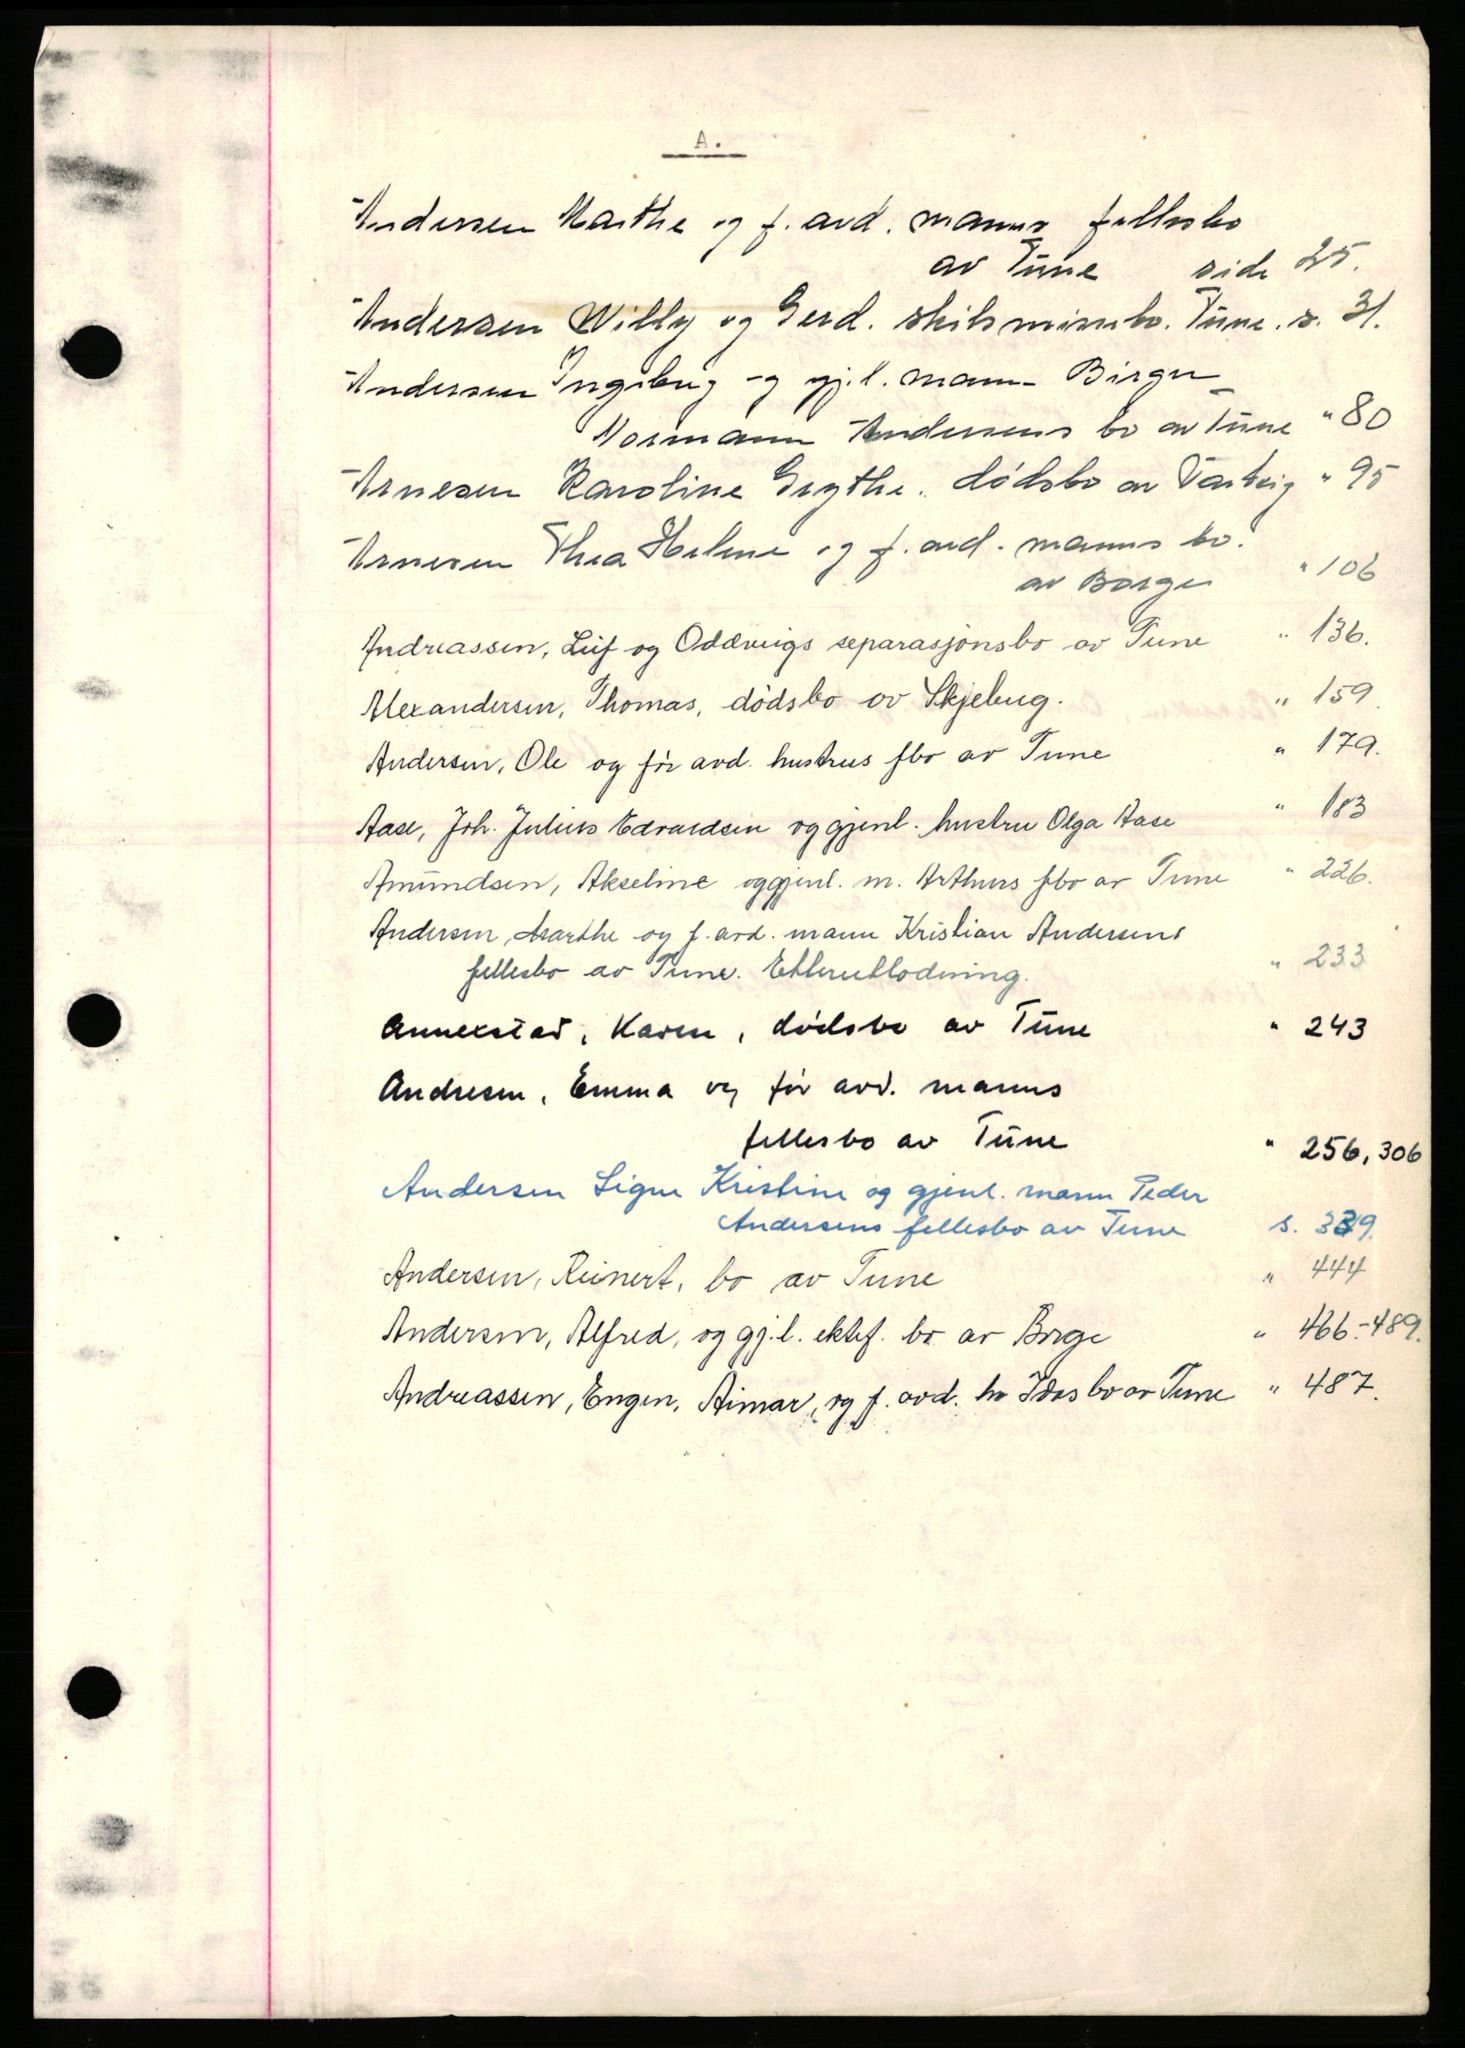 A.
Andersen Marthe og f. avd. manns fellesbo
av Tune side 25.
Andersen Willy og Gerd. skilsmissebo. Tune. s. 31.
Andersen Ingeborg og gj.l. mann Birger
Normann Andersens bo av Tune " 80
Arnesen Karoline Grythe. dødsbo av Varteig " 95
Arnesen Thea Helene og f. avd. manns bo.
av Borge " 106
Andreassen, Leif og Oddveigs separasjonsbo av Tune " 136.
Alexandersen, Thomas, dødsbo av Skjeberg. " 159.
Andersen, Ole og før avd. hustrus fbo av Tune " 179.
Aase, Joh. Julius Edvardsen og gjenl. hustru Olga Aase " 183
Amundsen, Akseline og gjenl. m. Arthurs fbo av Tune " 226.
Andersen, Marthe og f. avd. mann Kristian Andersens
fellesbo av Tune. Etterutlodning. " 233
Annexstad, Karen, dødsbo av Tune " 243
Andresen, Emma og før avd. manns
fellesbo av Tune " 256, 306
Andersen Signe Kristine og gjenl. mann Peder
Andersens fellesbo av Tune s. 339.
Andersen, Reinert, bo av Tune " 444
Andersen, Alfred, og gj.l. ektef. bo av Borge " 466.-489.
Andreassen, Engen, Aimar, og f. avd. hu Idas bo av Tune " 487.